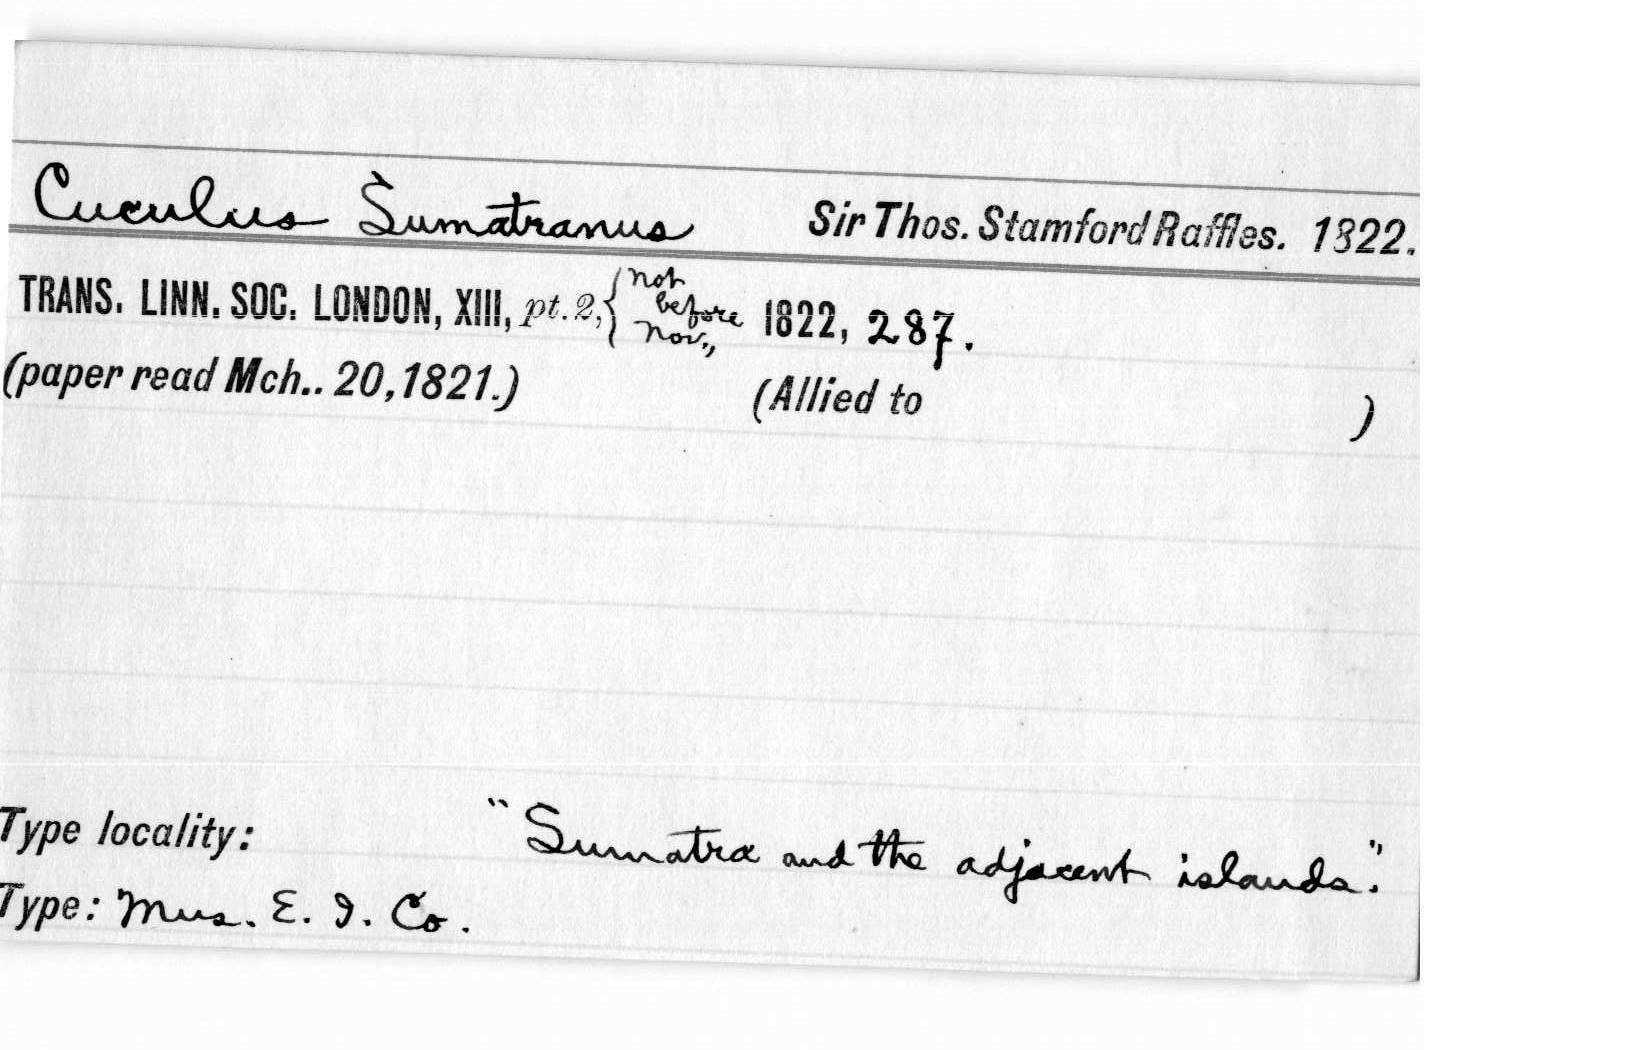 Cuculus Sumatranus Sir Thos. Stamford Raffles. 1822.
TRANS. LINN. SOC. LONDON, XIII, pt. 2, { not before Nov., 1822, 287.
(paper read Mch.. 20, 1821.) (Allied to )
Type locality: "Sumatra and the adjacent islands."
Type: Mus. E. I. Co.